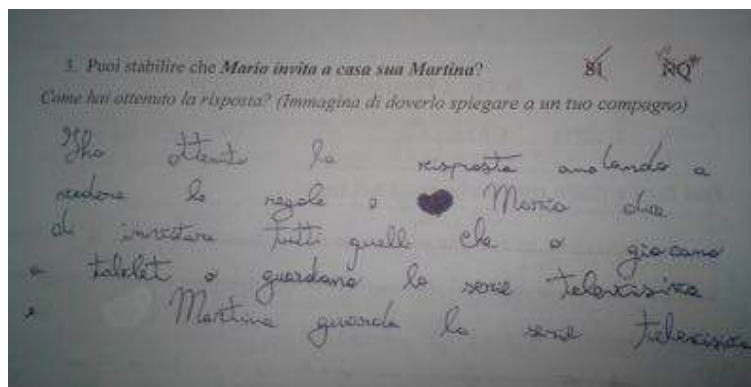 3. Puoi stabilire che Mario invita a casa sua Martina? SI NO
Come hai ottenuto la risposta? (Immagina di doverlo spiegare a un tuo compagno)
ho ottenuto la risposta andando a
vedere le regole e Mario dice
di invitare tutti quelli che o giocano
a tablet o guardano la serie televisiva
e Martina guarda la serie televisiva